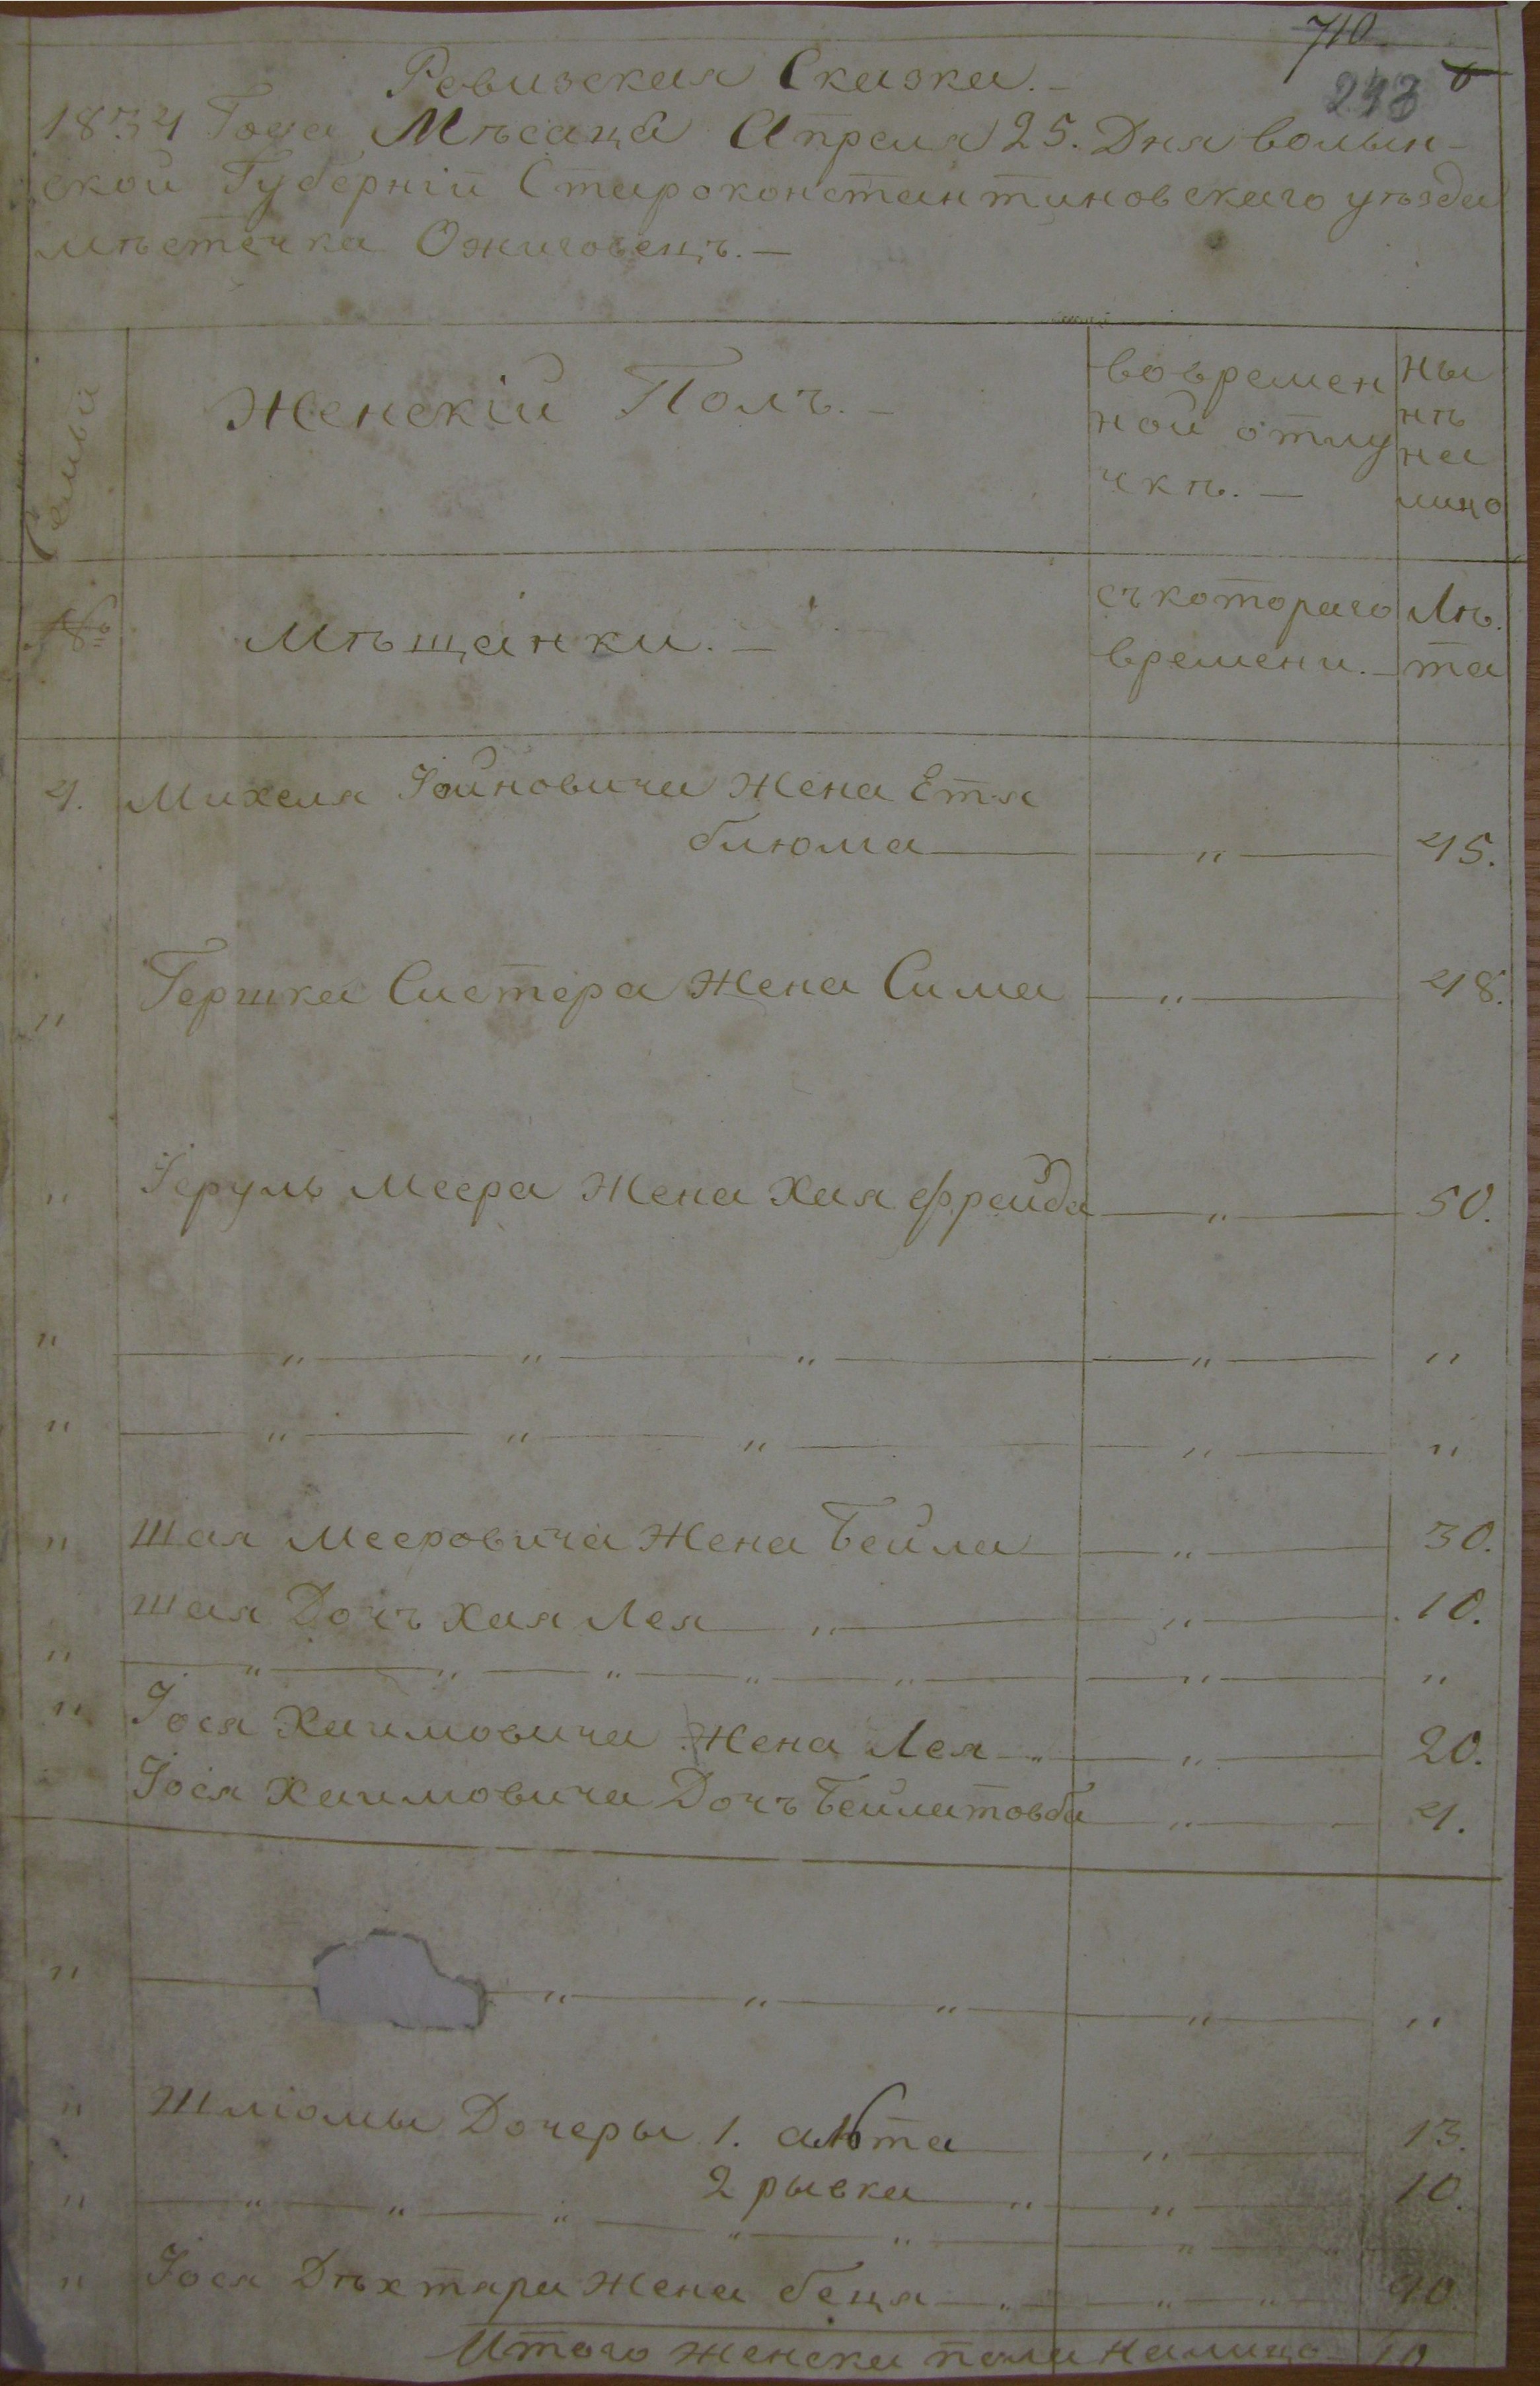 710
243
Ревизская Сказка. —
1834 Года Мѣсаца Апреля 25. Дня волын-
ской Губерніи Староконстантиновскаго уѣзда
мѣстечка Ожиговецъ. —
Семьи
Женскій Полъ. —
вовремен
ной отлу
чкѣ. —
Ны
нѣ
на
лицо
Мѣщанки. —
съ котораго
времени. —
Лѣ.
та
4. Михеля Іойновича Жена Етя
блюма — " — 45.
" Гершка Систера Жена Сима — " — 48.
" Геруль Меера Жена Хая фрейда — " — 50.
" — " — " — " — " — "
" — " — " — " — " — "
" Шая Мееровича Жена Бейла — " — 30.
Шая Дочъ Хая Лея — " — " — 10.
" — " — " — " — " — " — " — "
" Іося Хаимовича Жена Лея — " — " — 20.
Іося Хаимовича Дочъ Бейлатовба — " — 4.
" — " — " — " — " — "
" Шліомы Дочеры 1. аюта — " — 13.
" — " — " — " 2 рывка — " — " — 10.
— " — " — "
" Іося Дѣхтяра Жена беця — " — " — " — 40.
Итого женска пола налицо 10